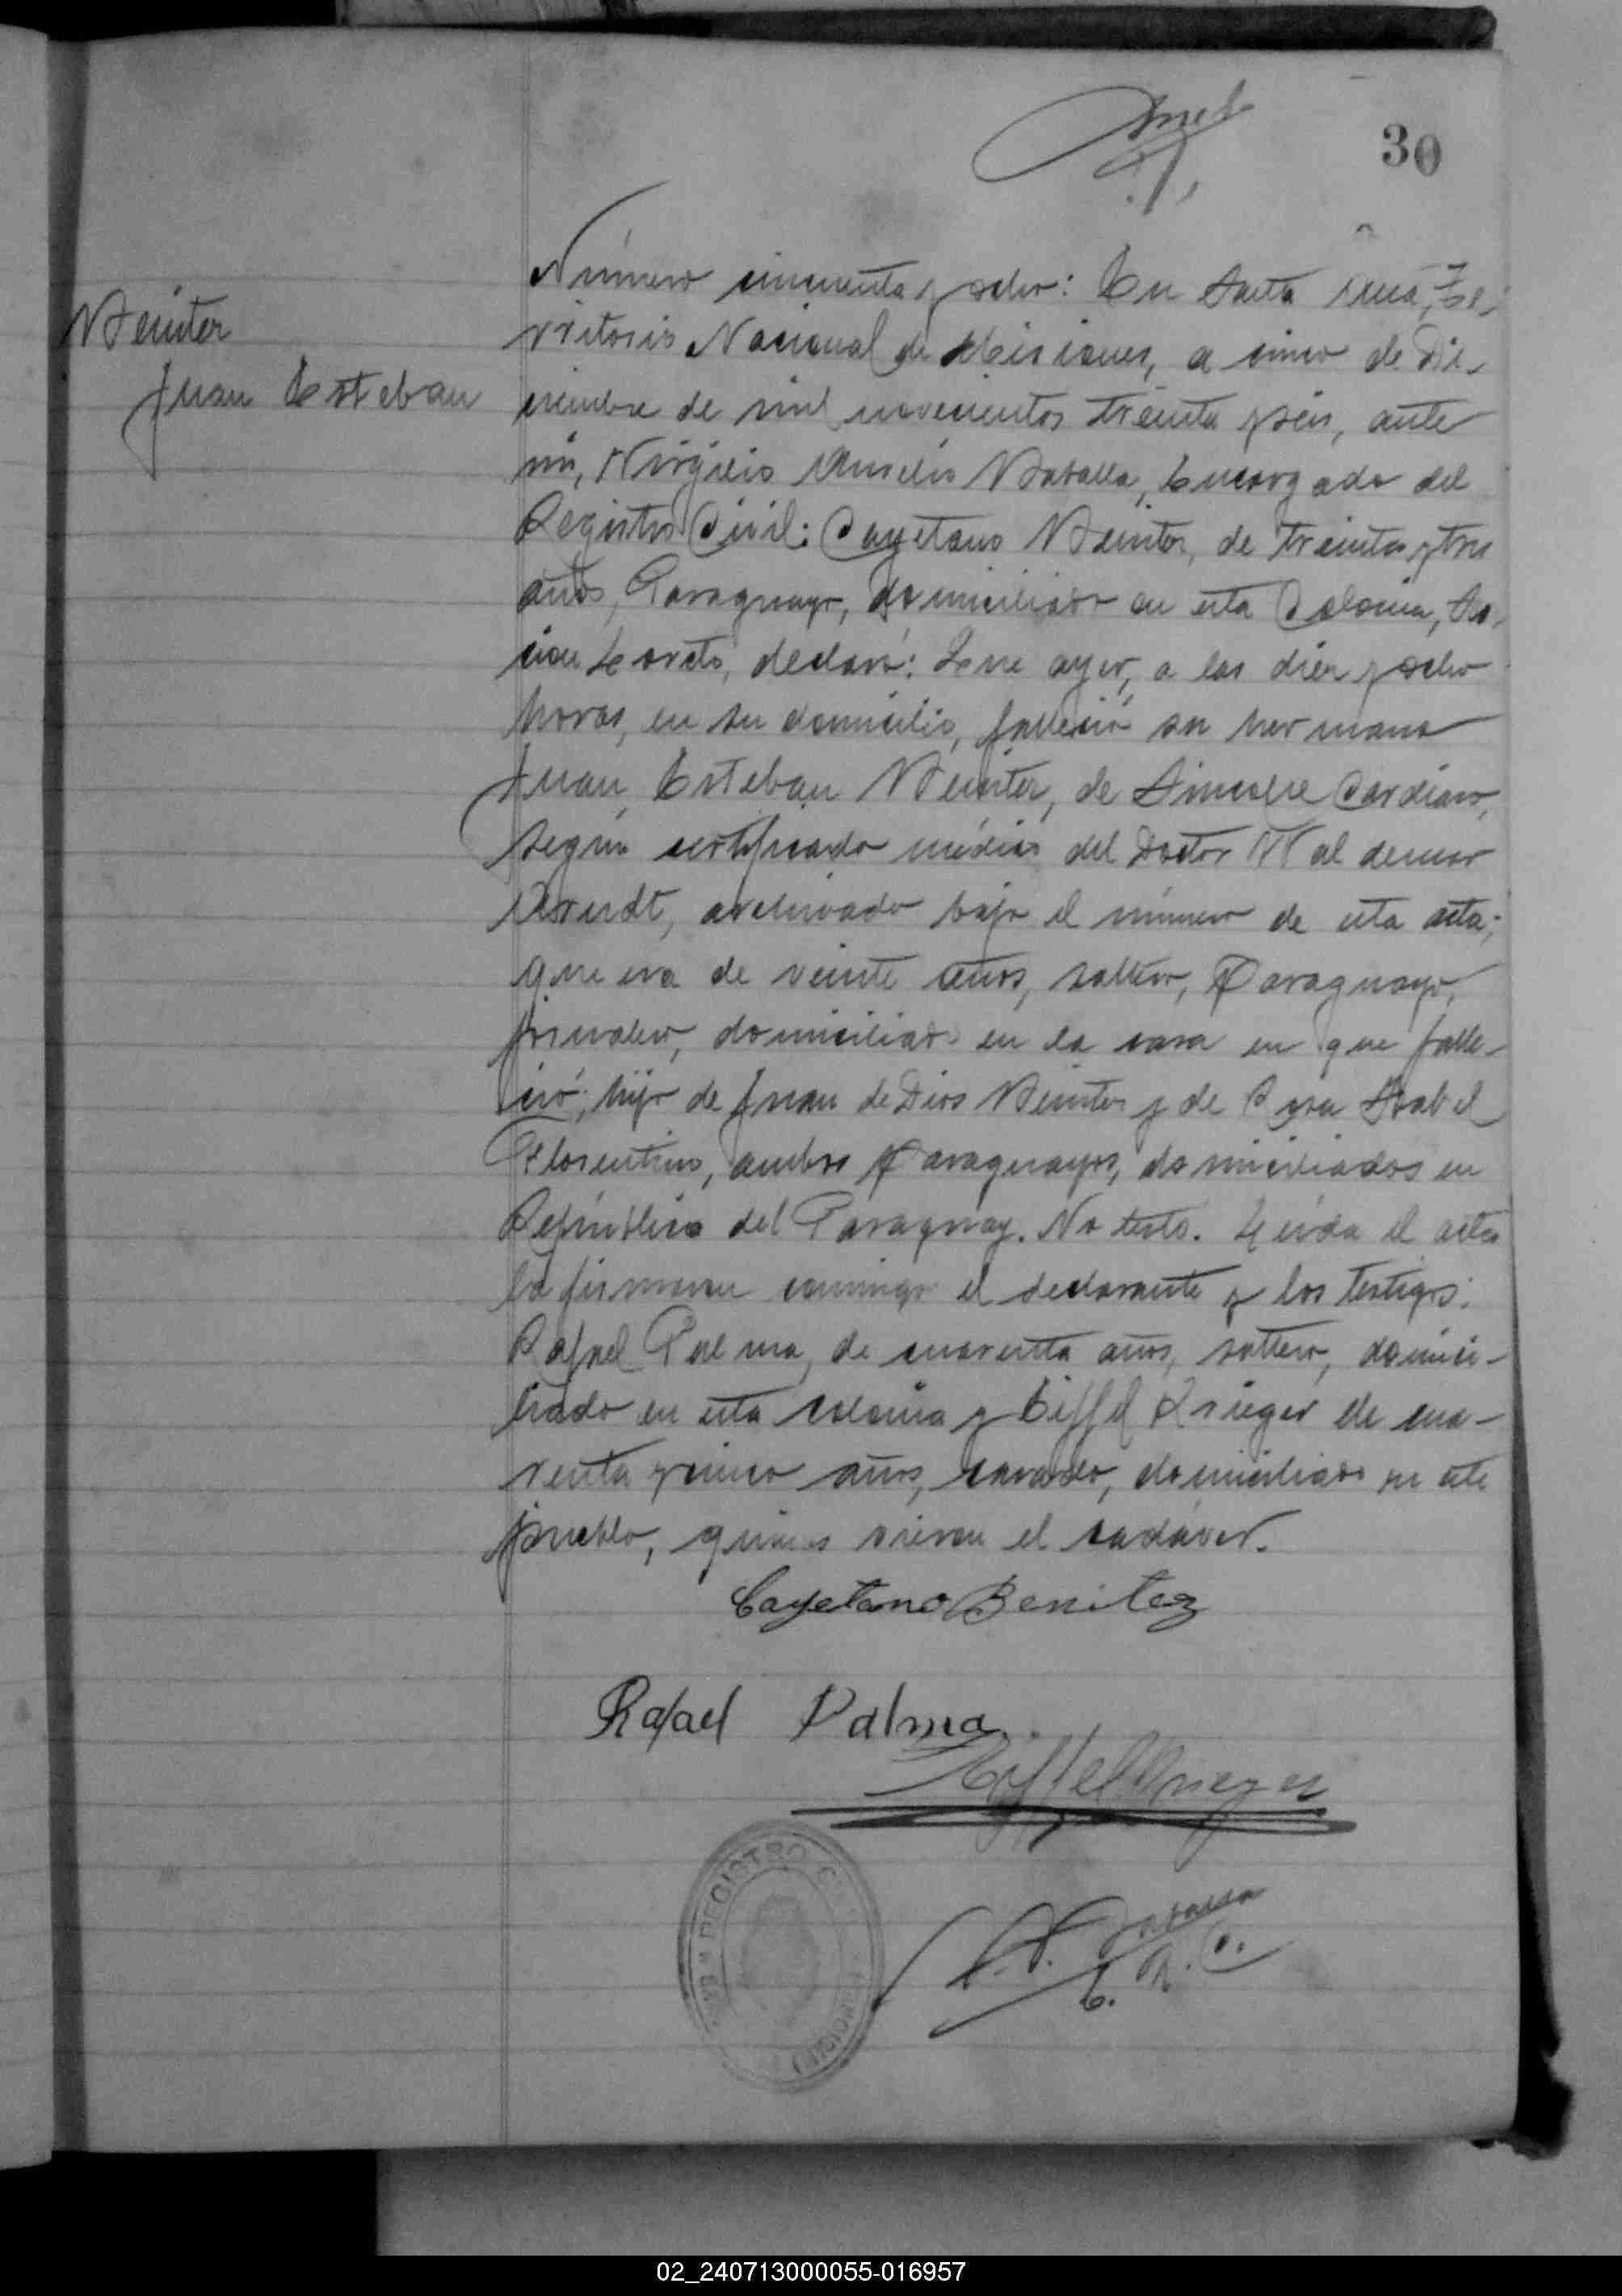 30
Benitez
Juan Esteban
Número cincuenta y ocho: En Santa Ana, Te-
rritorio Nacional de Misiones, a cinco de Di-
ciembre de mil novecientos treinta y seis, ante
mi, Virgilio Batalla, Encargado del
Registro Civil: Cayetano Benitez, de treinta y tres
años, Paraguayo, domiciliado en esta Colonia, Sec-
cion Loreto, declaró: Que ayer, a las diez y ocho
horas, en su domicilio, falleció su hermano
Juan Esteban Benitez, de Sincope Cardiaco,
según certificado médico del Doctor Waldemar
Arendt, archivado bajo el número de esta acta;
que era de veinte años, soltero, Paraguayo,
jornalero, domiciliado en la casa en que falle-
ció; hijo de Juan de Dios Benitez y de Rosa Isabel
Florentino, ambos Paraguayos, domiciliados en
República del Paraguay. No testó. Leida el acta
la firmaron conmigo el declarante y los testigos:
Rafael Palma, de cuarenta años, soltero, domici-
liado en esta colonia y Eiffel Krieger de cua-
renta y cinco años, casado, domiciliado en este
pueblo, quienes vieron el cadáver.
Cayetano Benitez
Rafael Palma
Eiffel Krieger
Batalla
E. R. C.
REGISTRO
02_240713000055-016957